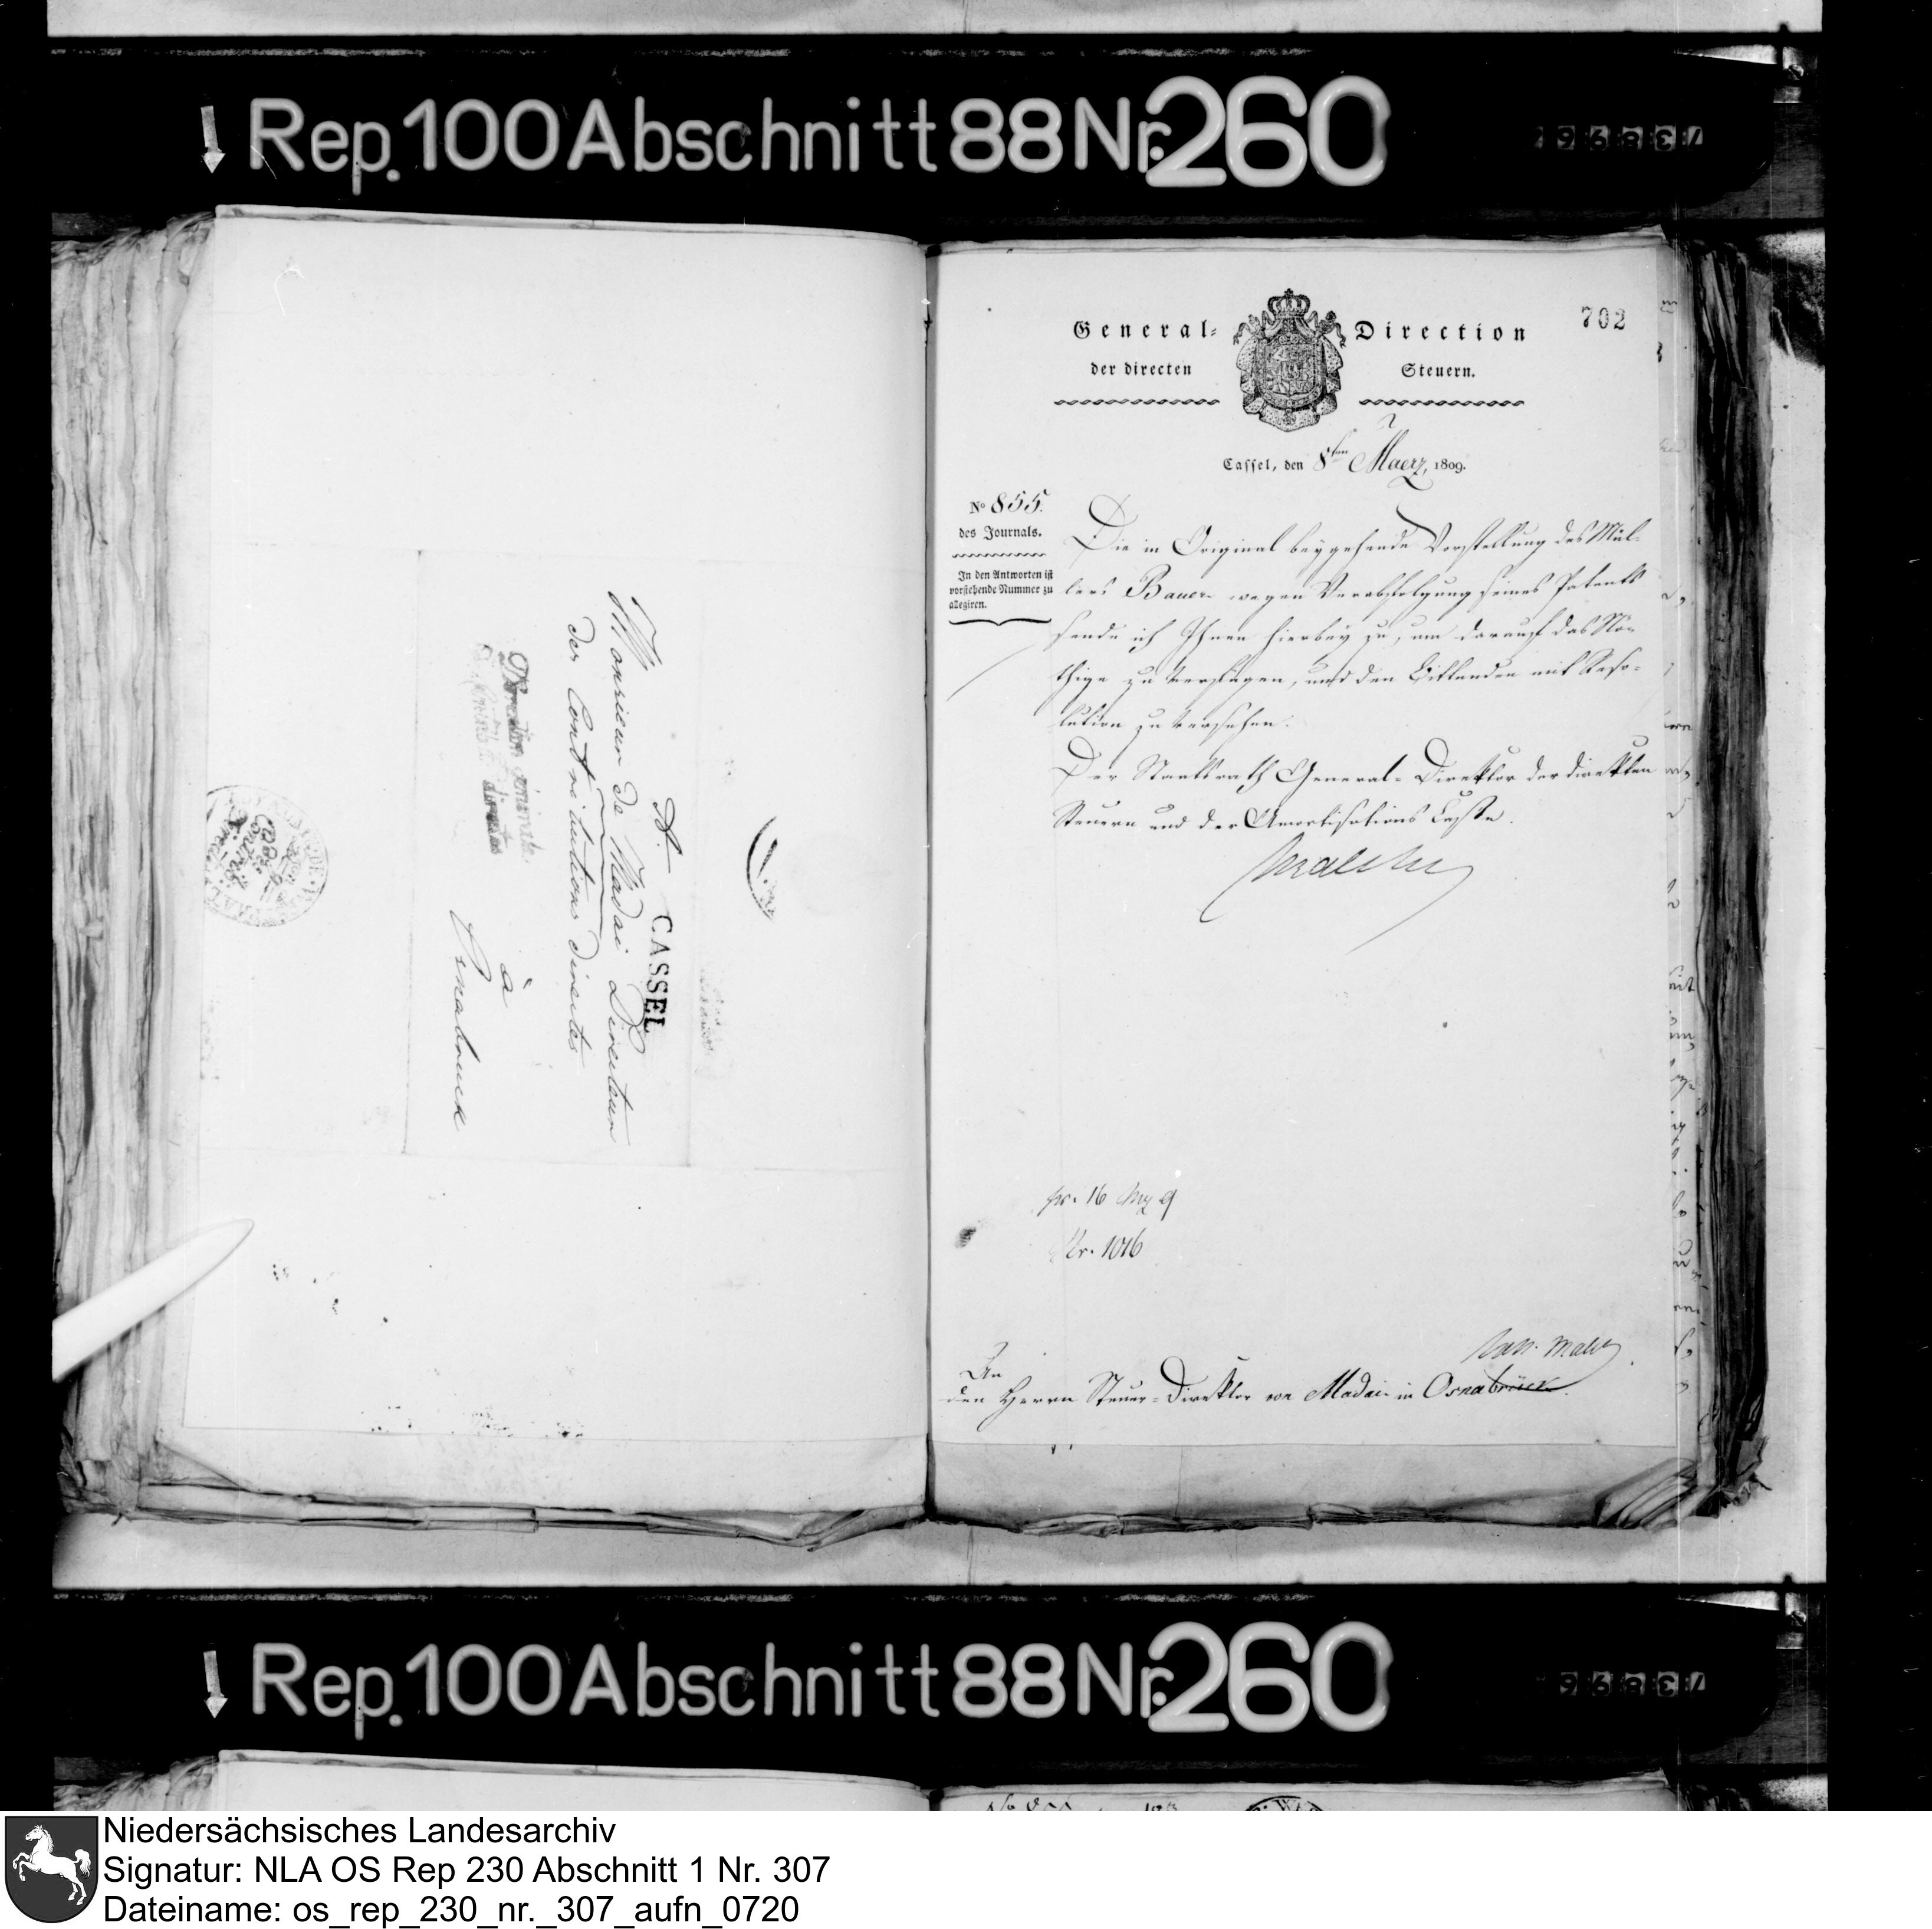 Rep. 100 Abschnitt 88 Nr. 260
A
CASSEL
Monsieur de Madai Directeur
der Contributions directes
à
Osnabruck
702
General- Direction
der directen Steuern.
Cassel, den 8ten Maerz, 1809.
No 855.
des Journals.
In den Antworten ist
vorstehende Nummer zu
allegiren.
Die im Original beygehende Vorstellung des Mül-
lers Bauer wegen Verabfolgung seines Patents
sende ich Ihnen hierbey zu, um darauf das Nö-
thige zu verfügen, und den Bittenden mit Reso-
lution zu versehen.
Der Staatsrath General-Direktor der direkten
Steuern und der Amortisations Casse.
Malchus
pr. 16 Mz 9
Nr. 1016
An
den Herrn Steuer-Direktor von Madai in Osnabrück.
Rep. 100 Abschnitt 88 Nr. 260
Niedersächsisches Landesarchiv
Signatur: NLA OS Rep 230 Abschnitt 1 Nr. 307
Dateiname: os_rep_230_nr._307_aufn_0720